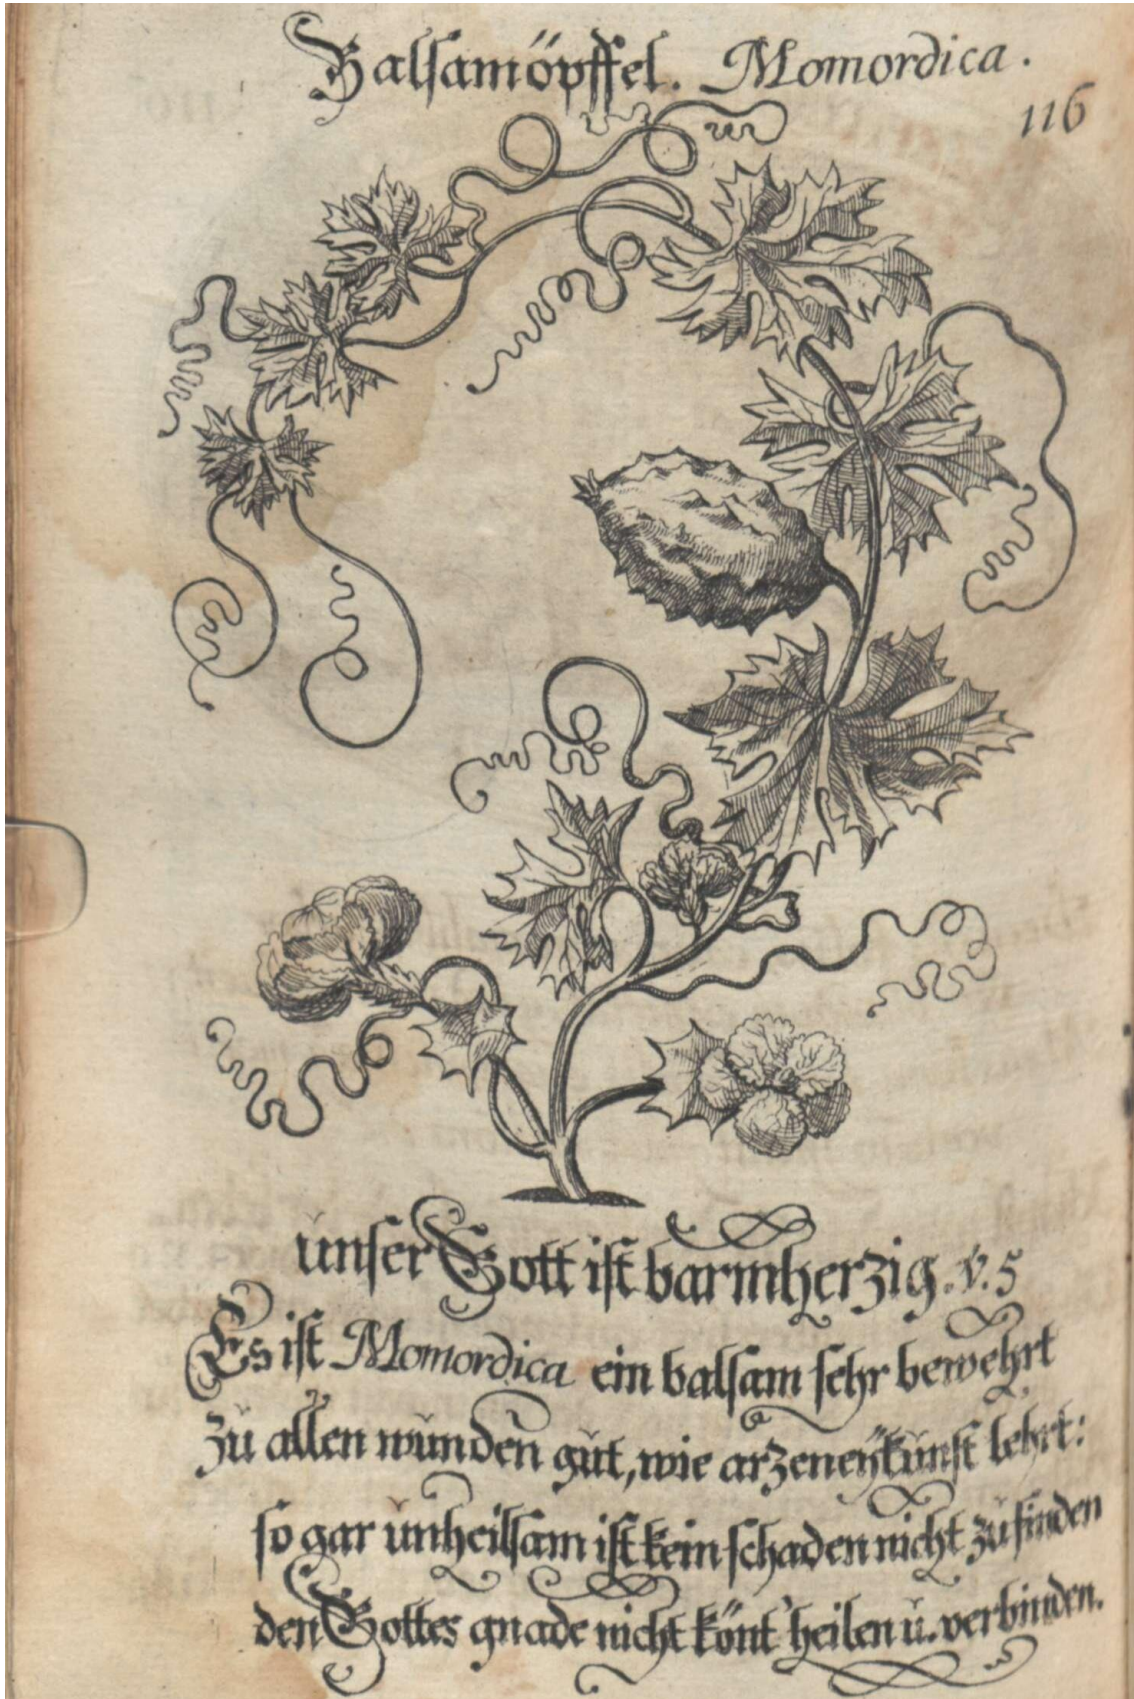 Balsamöpffel. Momordica.
116
unser Gott ist barmherzig. v. 5
Es ist Momordica ein balsam sehr bewehrt
zu allen wunden gut, wie arzeneÿkunst lehrt:
so gar unheilsam ist kein schaden nicht zu finden
den Gottes gnade nicht könt heilen u. verbinden.